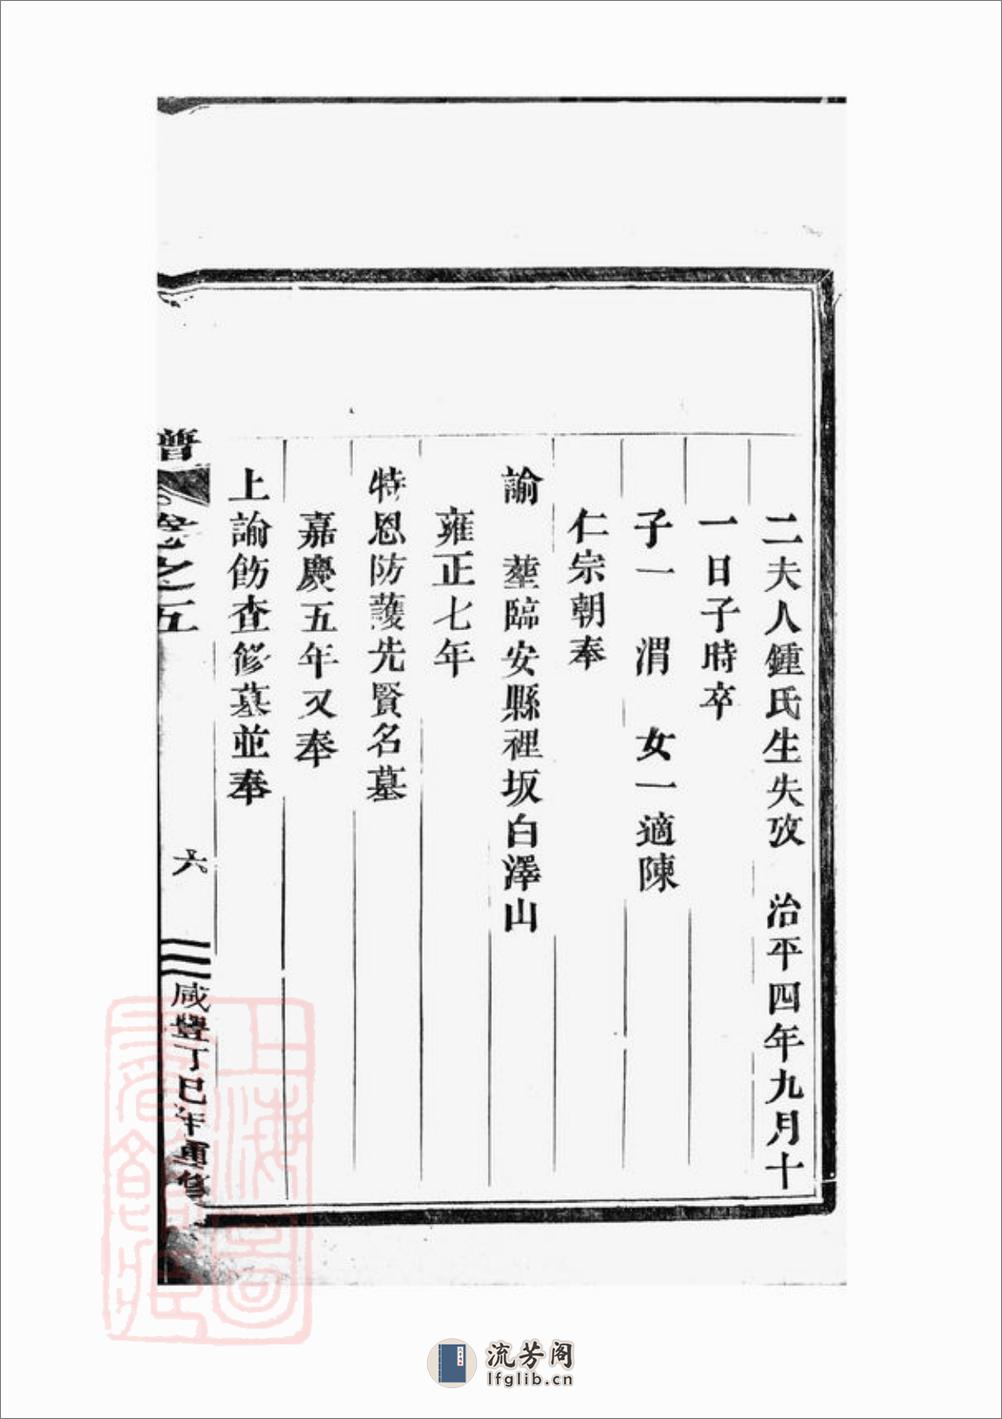 二夫人鍾氏生失攷 治平四年九月十
一日子時卒
子一 渭 女一適陳
仁宗朝奉
諭 塟臨安縣裡坂白澤山
雍正七年
特恩防護先賢名墓
嘉慶五年又奉
上諭飭查修墓並奉
譜 卷之五 六 咸豐丁巳年重修
上海圖書館藏
流芳阁
lfglib.cn